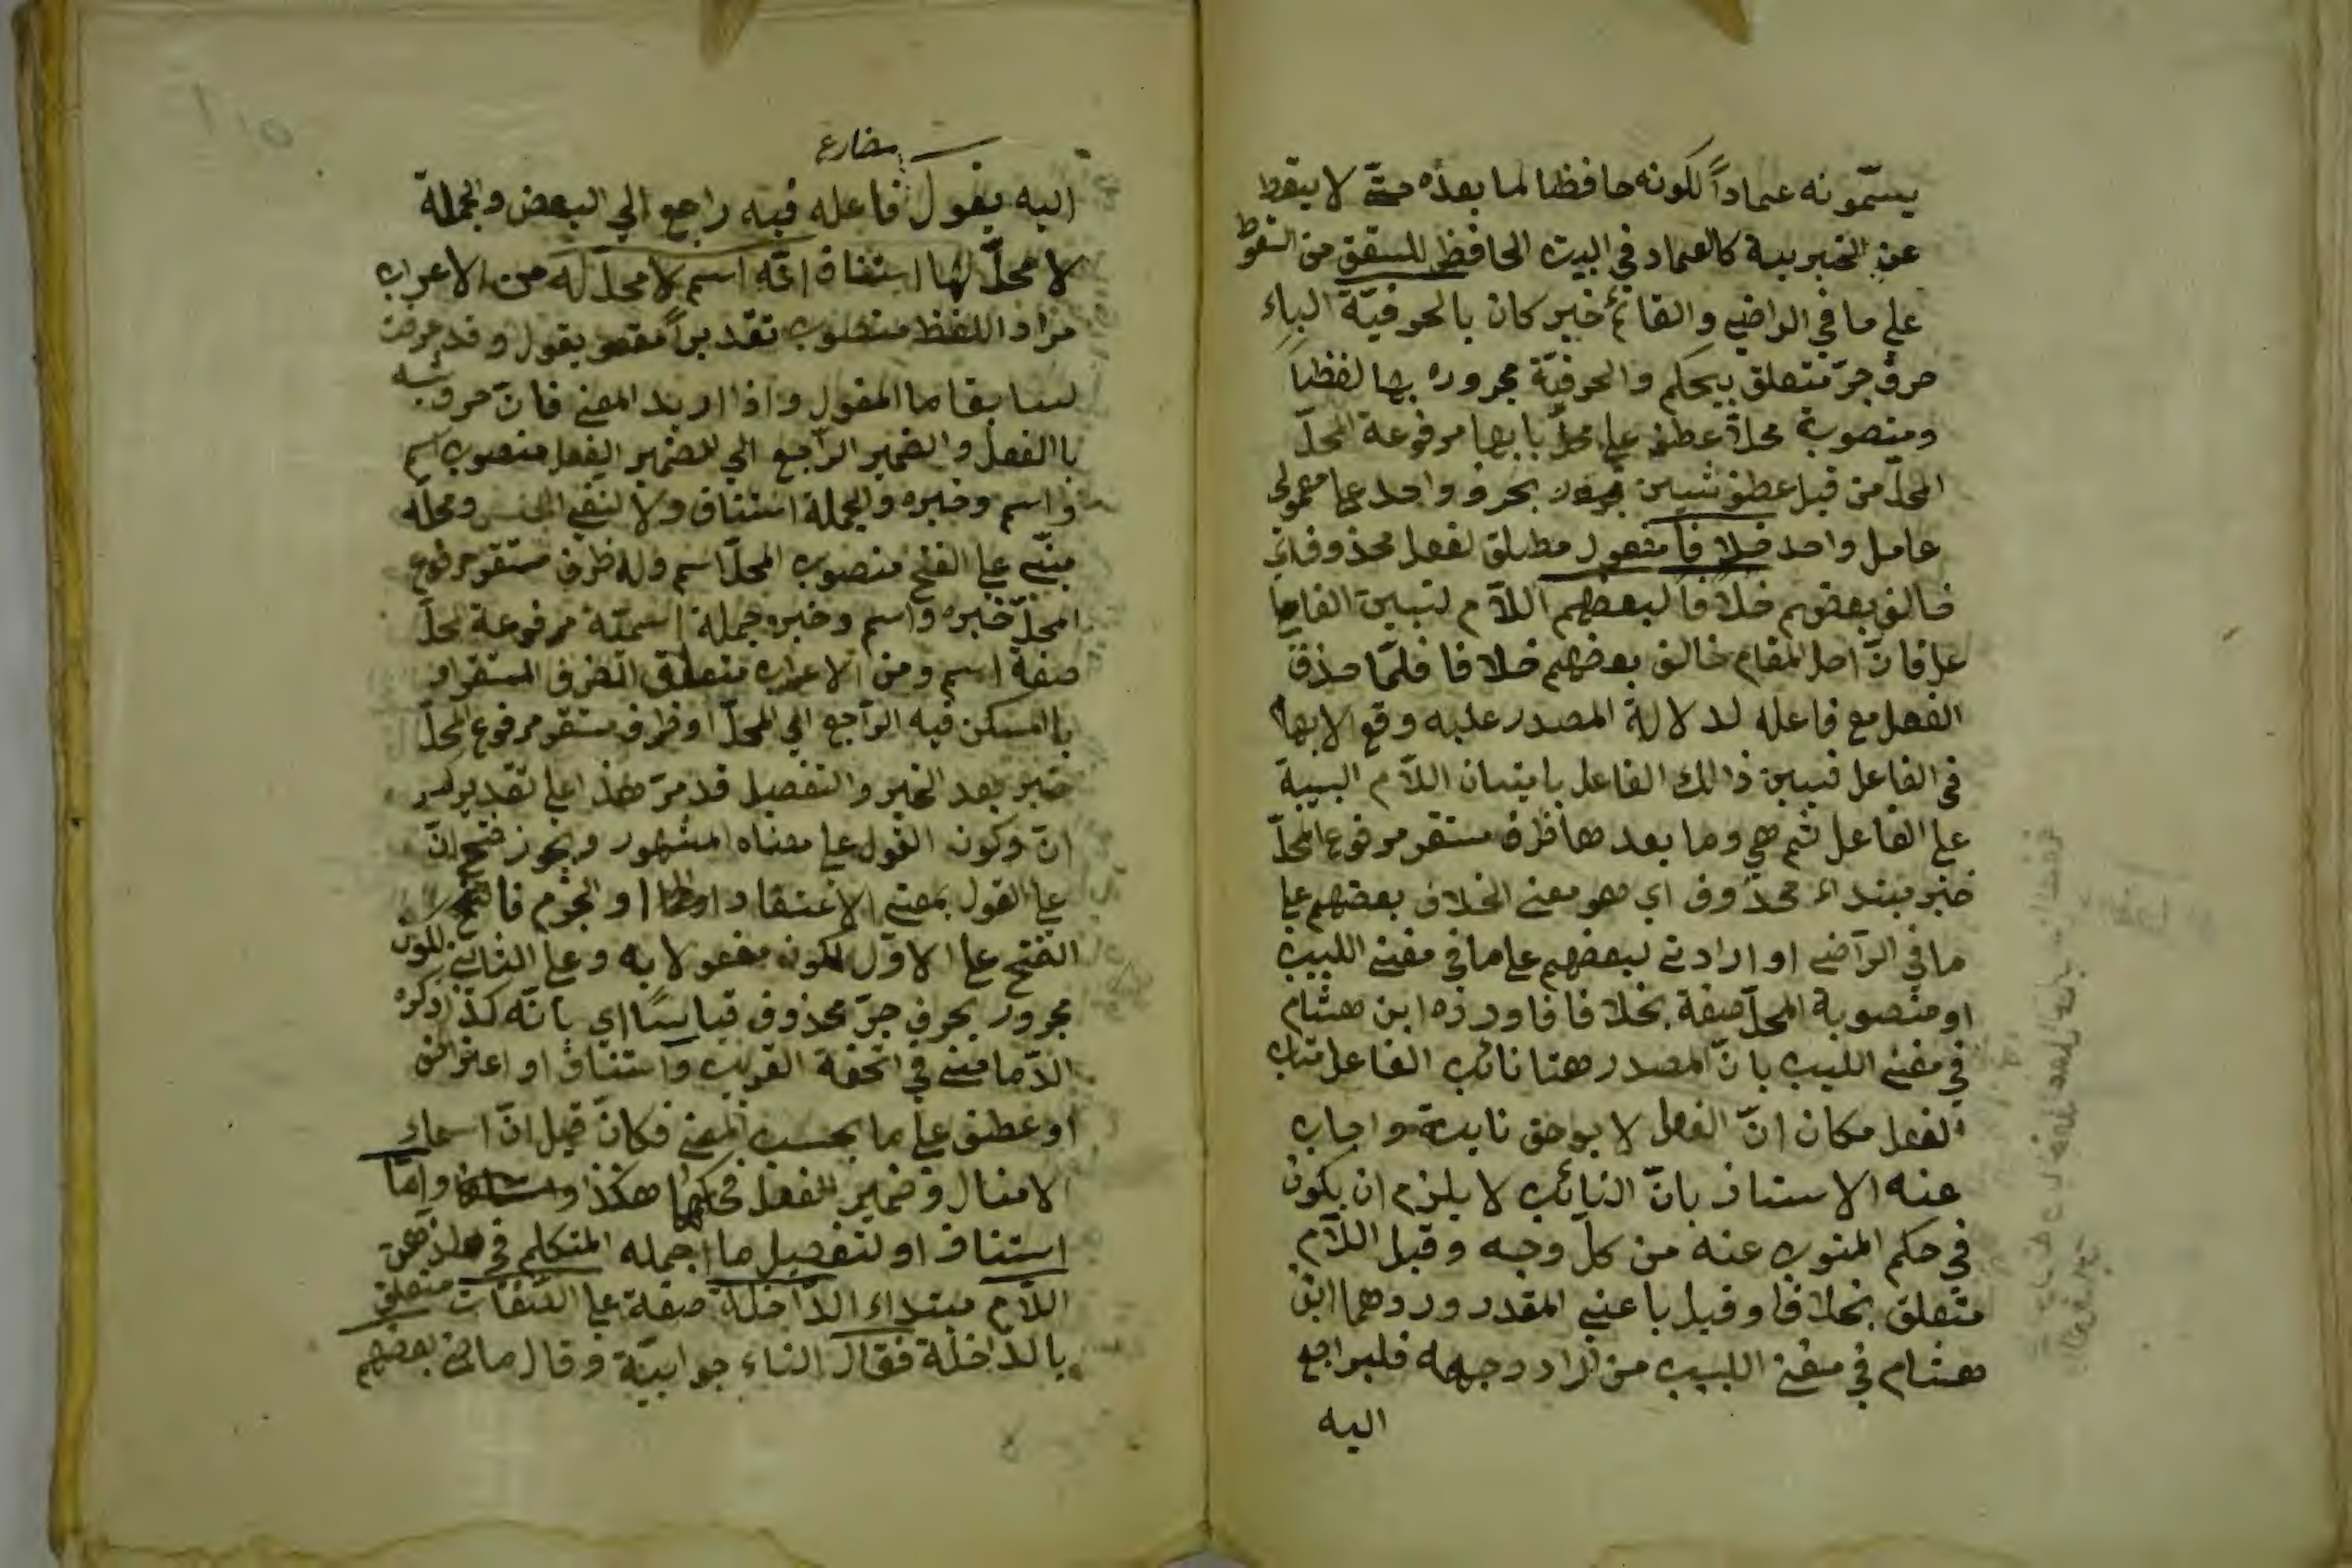 يسمّونه عماداً لكونه حافظا لما بعده حتّى لا يسقط
عن الخبرية كالعماد في البيت الحافظ للسقف من السقوط
على ما في الراضي والقائم خبر كان بالحرفيّة الباء
حرف جرّ متعلق بيحكم والحرفيّة مجرورة بها لفظا
ومنصوبة محلاّ عطف على محلّ بابها مرفوعة المحلّ
المحلّ من قبل عطف شيين بحرف واحد على معمولي
عامل واحد خلافا مفعول مطلق لفعل محذوف اي
خالف بعضهم خلافا لبعضهم اللاّم لتبيين الفاعل
على فانّ اصل المقام خالف بعضهم خلافا فلمّا حذف
الفعل مع فاعله لدلالة المصدر عليه وقع الابهام
في الفاعل فبيين ذالك الفاعل باتيان اللاّم البيينة
على الفاعل ثم هي وما بعدها ظرف مستقر مرفوع المحلّ
خبر مبتداء محذوف اي هو معنى الخلاف بعضهم على
ما في الرّاضي او ارادتي لبعضهم على ما في مغني اللبيب
او منصوبة المحلّ صفة بخلافا فاورده ابن هشام
في مغني اللبيب بانّ المصدر هنا نائب الفاعل مناب
الفعل فكان انّ الفعل لا يوصف نايبه واجاب
عنه الاستاذ بانّ النيائب لا يلزم ان يكون
في حكم المنوب عنه من كلّ وجه وقيل اللاّم
متعلق بخلافا وقيل باعني المقدر وردهما ابن
هشام في مغني اللبيب من اراد وجهه فليراجع
اليه
مضارع
اليه يقول فاعله فيه راجع الي البعض والجملة
لا محلّ لها استيناف انّه اسم لا محلّ له من الاعراب
مراد اللفظ منصوب تقديراً مقول يقول وقد عرفت
لسابقا ما المقول واذا اريد المعني فانّ حرف شبه
باالفعل والضمير الرّاجع الي الضمير الفصل منصوب اسم
واسم وخبره والجملة استيناف ولا لنفي الجنس ومحلّه
مبنّي على الفتح منصوب المحلّ اسم وله ظرف مستقر مرفوع
المحلّ خبره واسم وخبره جملة اسميّة مرفوعة المحلّ
صفة اسم ومن الاعراب متعلق الظرف المستقر او
باالمسكن فيه الرّاجع الي المحلّ او ظرف مستقر مرفوع المحلّ
خبر بعد الخبر والتفصيل قد مرّ هذا على تقدير كسر
انّ وكون القول على معناه المشهور ويجوز فتح انّ
على القول بمعنى الاعتقاد او الجزم فالفتح
الفتح على الاوّل لكون مفعولا به وعلى الثاني لكون
مجرور بحرف جرّ محذوف قياسًا اي بانّه كذا ذكره
الدّماميني في تحفة القريب واستيناف او اعتراض
او عطف على ما بحسب المعني فكانّ قيل انّ اسماء
الافعال وضمير الفصل فحكمها هكذا وامّا
استيناف او لتفصيل ما اجمله المتكلم في الذهن
اللاّم مبتداء الدّاخلة صفة على الصّفات متعلق
بالدّاخلة فقال الفاء جوابيّة وقال ماض بعضهم